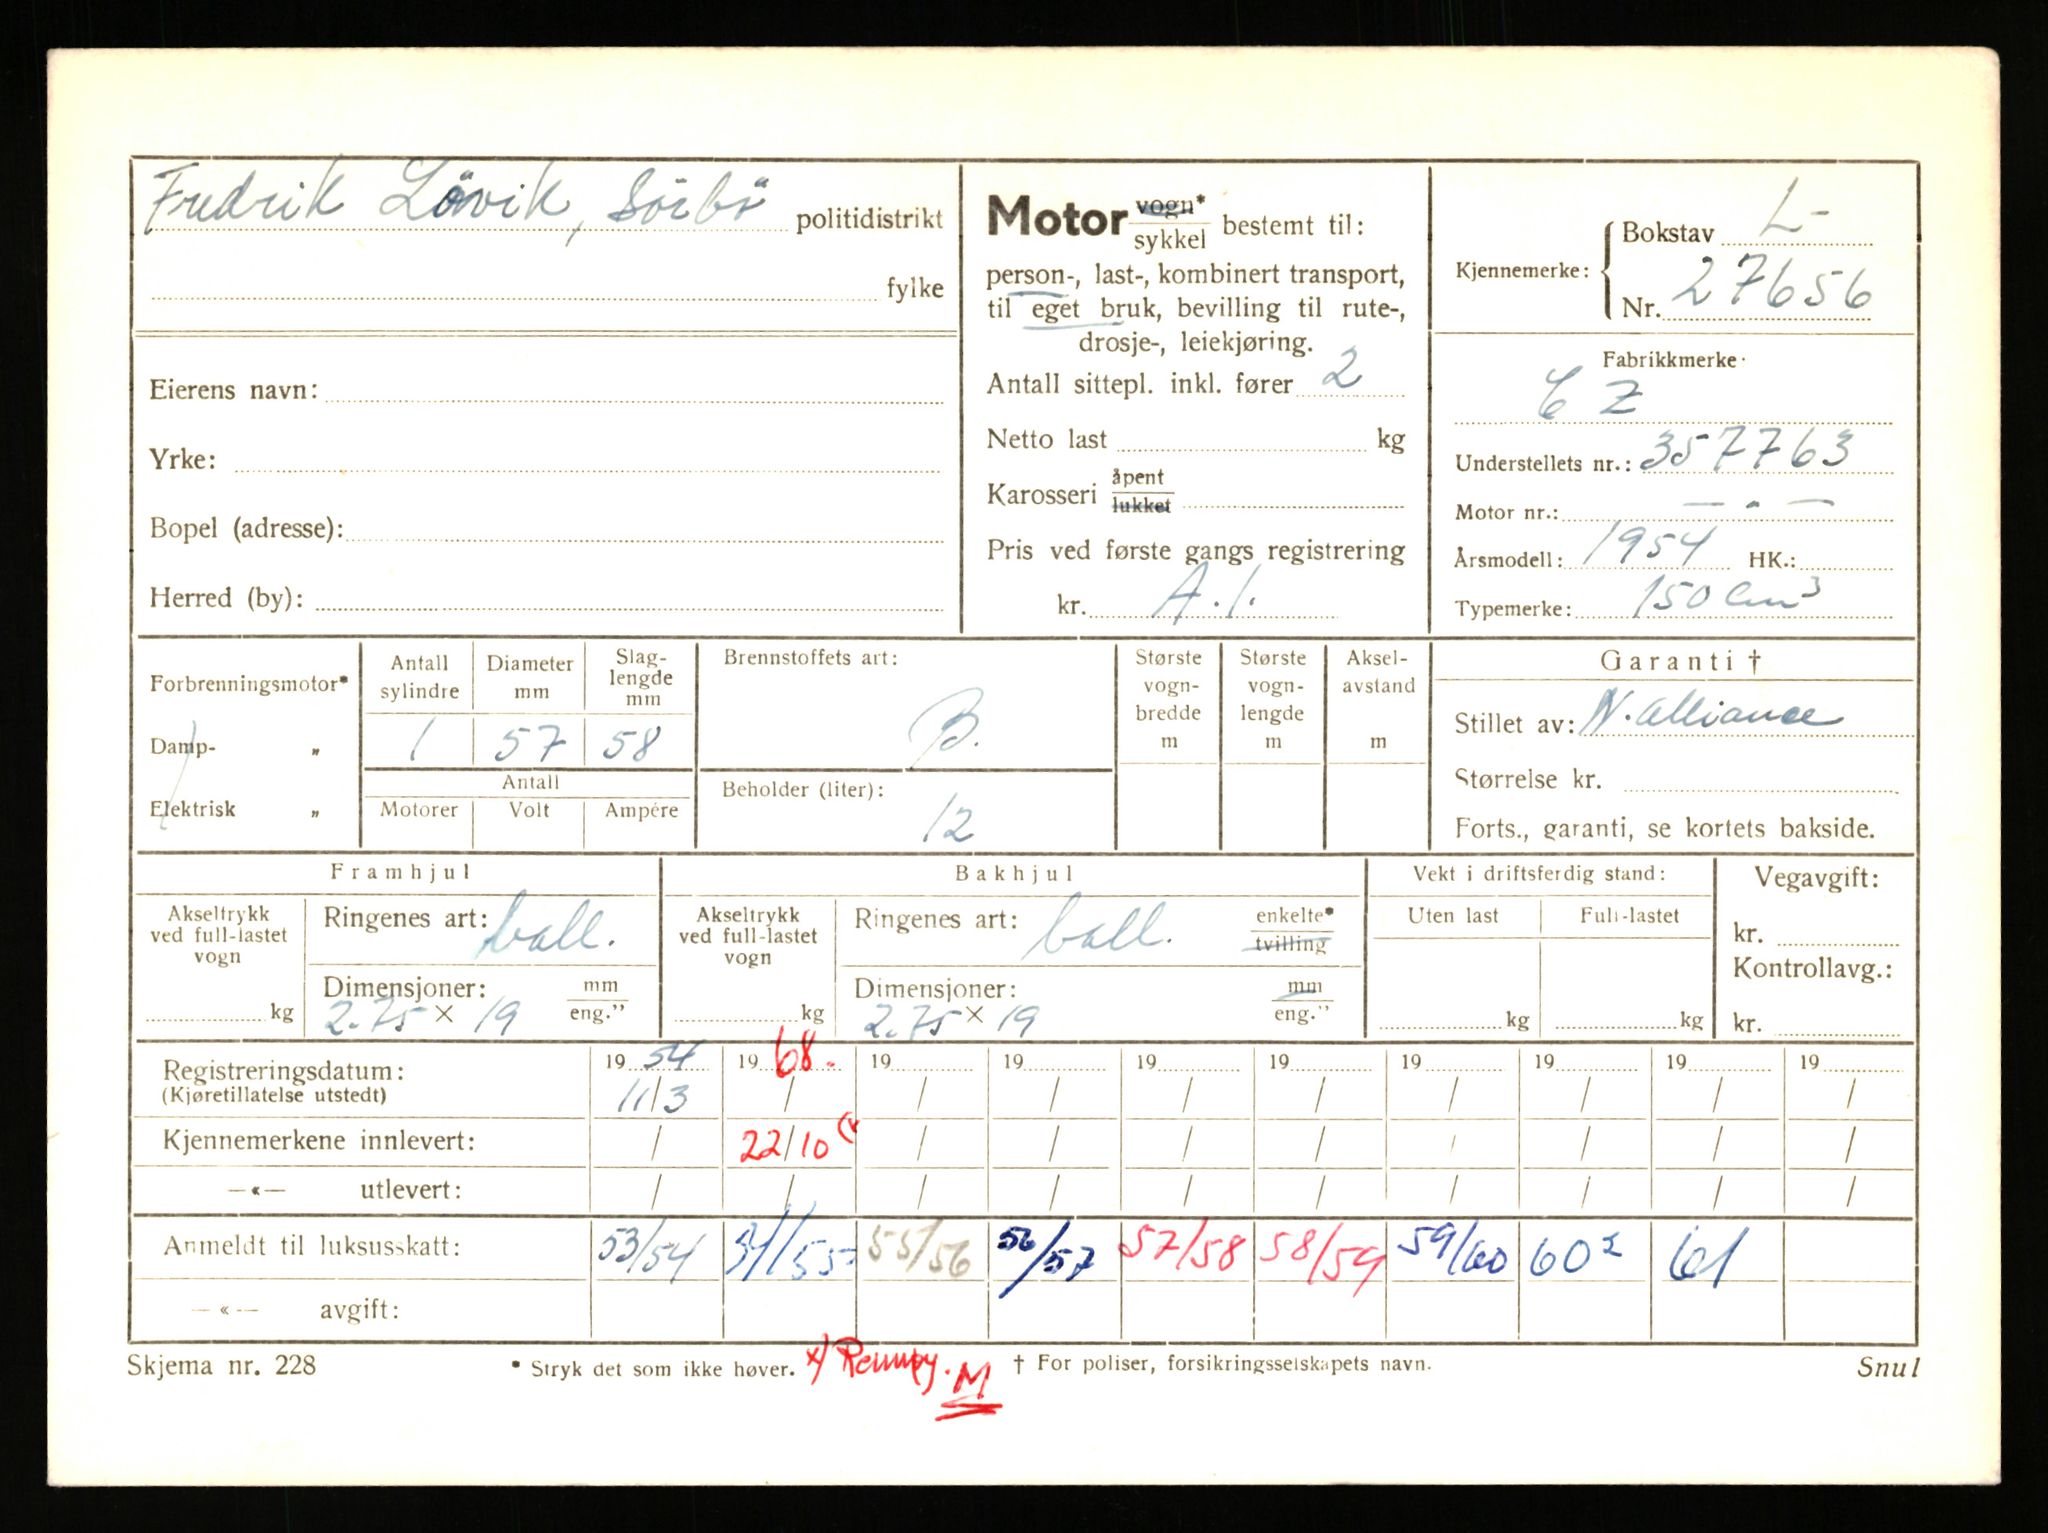 Fredrik Lövik, Sörbö politidistrikt
fylke
Eierens navn:
Yrke:
Bopel (adresse):
Herred (by):
Motor vogn* sykkel bestemt til:
person-, last-, kombinert transport,
til eget bruk, bevilling til rute-,
drosje-, leiekjøring.
Antall sittepl. inkl. fører 2
Netto last kg
Karosseri åpent lukket
Pris ved første gangs registrering
kr. A.1.
Kjennemerke: Bokstav L-
Nr. 27656
Fabrikkmerke
CZ
Understellets nr.: 357763
Motor nr.: — . —
Årsmodell: 1954 HK.:
Typemerke: 150 cm³
Forbrenningsmotor*
Damp- „
Elektrisk „
Antall sylindre
Diameter mm
Slag-
lengde
mm
1 57 58
Antall
Motorer Volt Ampére
Brennstoffets art:
B.
Beholder (liter):
12
Største
vogn-
bredde
m
Største
vogn-
lengde
m
Aksel-
avstand
m
Garanti †
Stillet av: N. alliance
Størrelse kr.
Forts., garanti, se kortets bakside.
Framhjul
Akseltrykk
ved full-lastet
vogn
kg
Ringenes art: ball.
Dimensjoner: mm eng."
2.75 × 19
Bakhjul
Akseltrykk
ved full-lastet
vogn
kg
Ringenes art: ball. enkelte* tvilling
Dimensjoner: mm eng."
2.75 × 19
Vekt i driftsferdig stand:
Uten last Full-lastet
kg kg
Vegavgift:
kr.
Kontrollavg.:
kr.
Registreringsdatum: 19 54 19 68. 19 19 19 19 19 19 19 19
(Kjøretillatelse utstedt) 11/3 / / / / / / / / /
Kjennemerkene innlevert: / 22/10 (x / / / / / / / /
—«— utlevert: / / / / / / / / / /
Anmeldt til luksusskatt: 53/54 54/55 55/56 56/57 57/58 58/59 59/60 60² 61
—«— avgift:
Skjema nr. 228 * Stryk det som ikke høver. x) M † For poliser, forsikringsselskapets navn. Snul